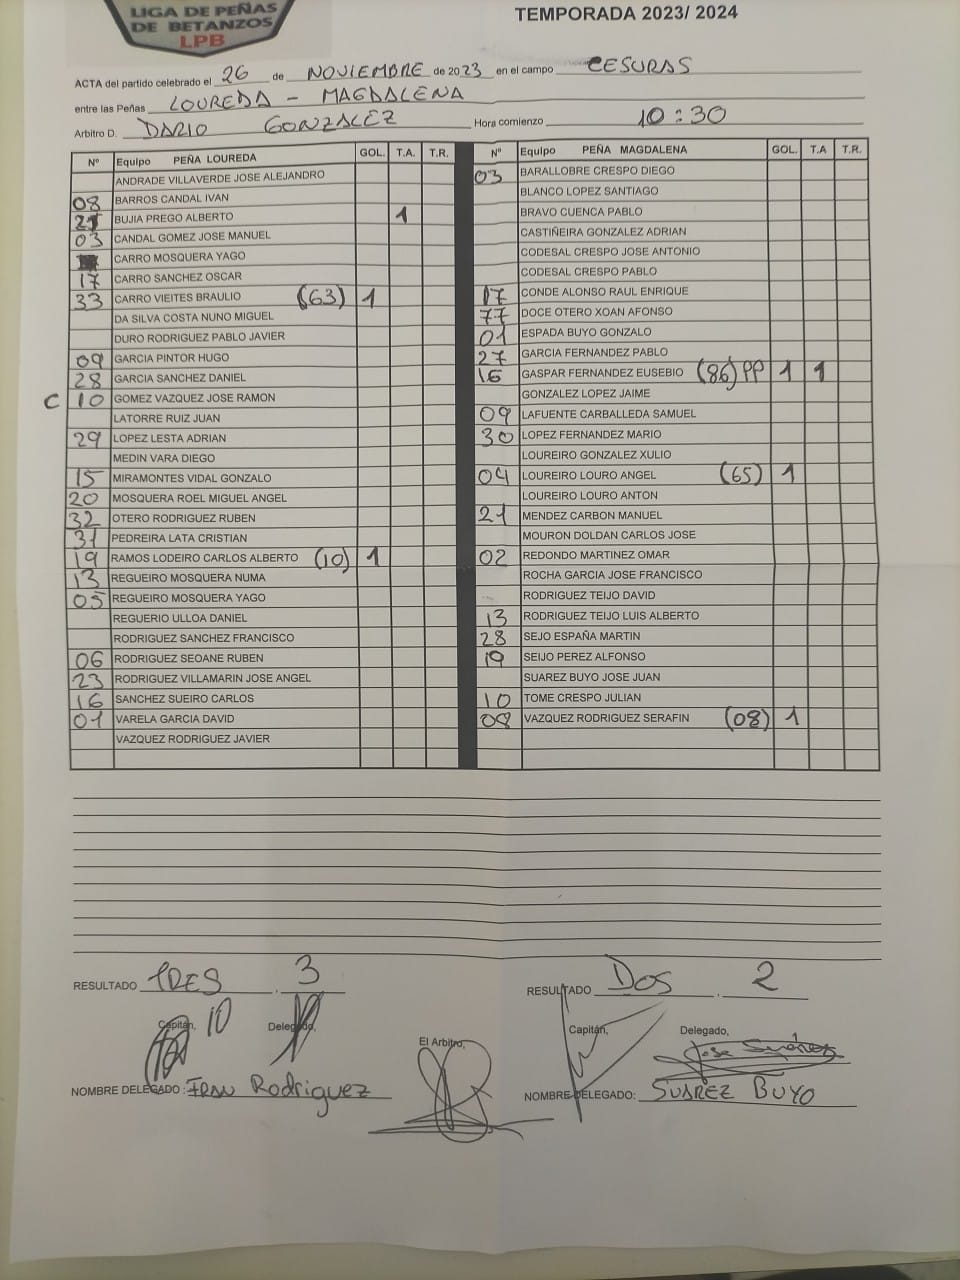 LIGA DE PEÑAS
DE BETANZOS
LPB
TEMPORADA 2023/ 2024
ACTA del partido celebrado el 26 de NOVIEMBRE de 2023 en el campo CESURAS
entre las Peñas LOUREDA - MAGDALENA
Arbitro D. DARIO GONZALEZ Hora comienzo 10:30
Nº Equipo PEÑA LOUREDA GOL. T.A. T.R.
ANDRADE VILLAVERDE JOSE ALEJANDRO
08 BARROS CANDAL IVAN
21 BUJIA PREGO ALBERTO 1
03 CANDAL GOMEZ JOSE MANUEL
CARRO MOSQUERA YAGO
17 CARRO SANCHEZ OSCAR
33 CARRO VIEITES BRAULIO (63) 1
DA SILVA COSTA NUNO MIGUEL
DURO RODRIGUEZ PABLO JAVIER
09 GARCIA PINTOR HUGO
28 GARCIA SANCHEZ DANIEL
C 10 GOMEZ VAZQUEZ JOSE RAMON
LATORRE RUIZ JUAN
29 LOPEZ LESTA ADRIAN
MEDIN VARA DIEGO
15 MIRAMONTES VIDAL GONZALO
20 MOSQUERA ROEL MIGUEL ANGEL
32 OTERO RODRIGUEZ RUBEN
31 PEDREIRA LATA CRISTIAN
19 RAMOS LODEIRO CARLOS ALBERTO (10) 1
13 REGUEIRO MOSQUERA NUMA
05 REGUEIRO MOSQUERA YAGO
REGUERIO ULLOA DANIEL
RODRIGUEZ SANCHEZ FRANCISCO
06 RODRIGUEZ SEOANE RUBEN
23 RODRIGUEZ VILLAMARIN JOSE ANGEL
16 SANCHEZ SUEIRO CARLOS
01 VARELA GARCIA DAVID
VAZQUEZ RODRIGUEZ JAVIER
Nº Equipo PEÑA MAGDALENA GOL. T.A T.R.
03 BARALLOBRE CRESPO DIEGO
BLANCO LOPEZ SANTIAGO
BRAVO CUENCA PABLO
CASTIÑEIRA GONZALEZ ADRIAN
CODESAL CRESPO JOSE ANTONIO
CODESAL CRESPO PABLO
17 CONDE ALONSO RAUL ENRIQUE
77 DOCE OTERO XOAN AFONSO
01 ESPADA BUYO GONZALO
27 GARCIA FERNANDEZ PABLO
16 GASPAR FERNANDEZ EUSEBIO (86) PP 1 1
GONZALEZ LOPEZ JAIME
09 LAFUENTE CARBALLEDA SAMUEL
30 LOPEZ FERNANDEZ MARIO
LOUREIRO GONZALEZ XULIO
04 LOUREIRO LOURO ANGEL (65) 1
LOUREIRO LOURO ANTON
21 MENDEZ CARBON MANUEL
MOURON DOLDAN CARLOS JOSE
02 REDONDO MARTINEZ OMAR
ROCHA GARCIA JOSE FRANCISCO
RODRIGUEZ TEIJO DAVID
13 RODRIGUEZ TEIJO LUIS ALBERTO
28 SEJO ESPAÑA MARTIN
19 SEIJO PEREZ ALFONSO
SUAREZ BUYO JOSE JUAN
10 TOME CRESPO JULIAN
08 VAZQUEZ RODRIGUEZ SERAFIN (08) 1
RESULTADO TRES . 3
RESULTADO DOS . 2
Capitán, 10 Delegado,
El Arbitro,
Capitán, Delegado,
Jose Suárez
NOMBRE DELEGADO: FRAN Rodriguez
NOMBRE DELEGADO: SUAREZ BUYO